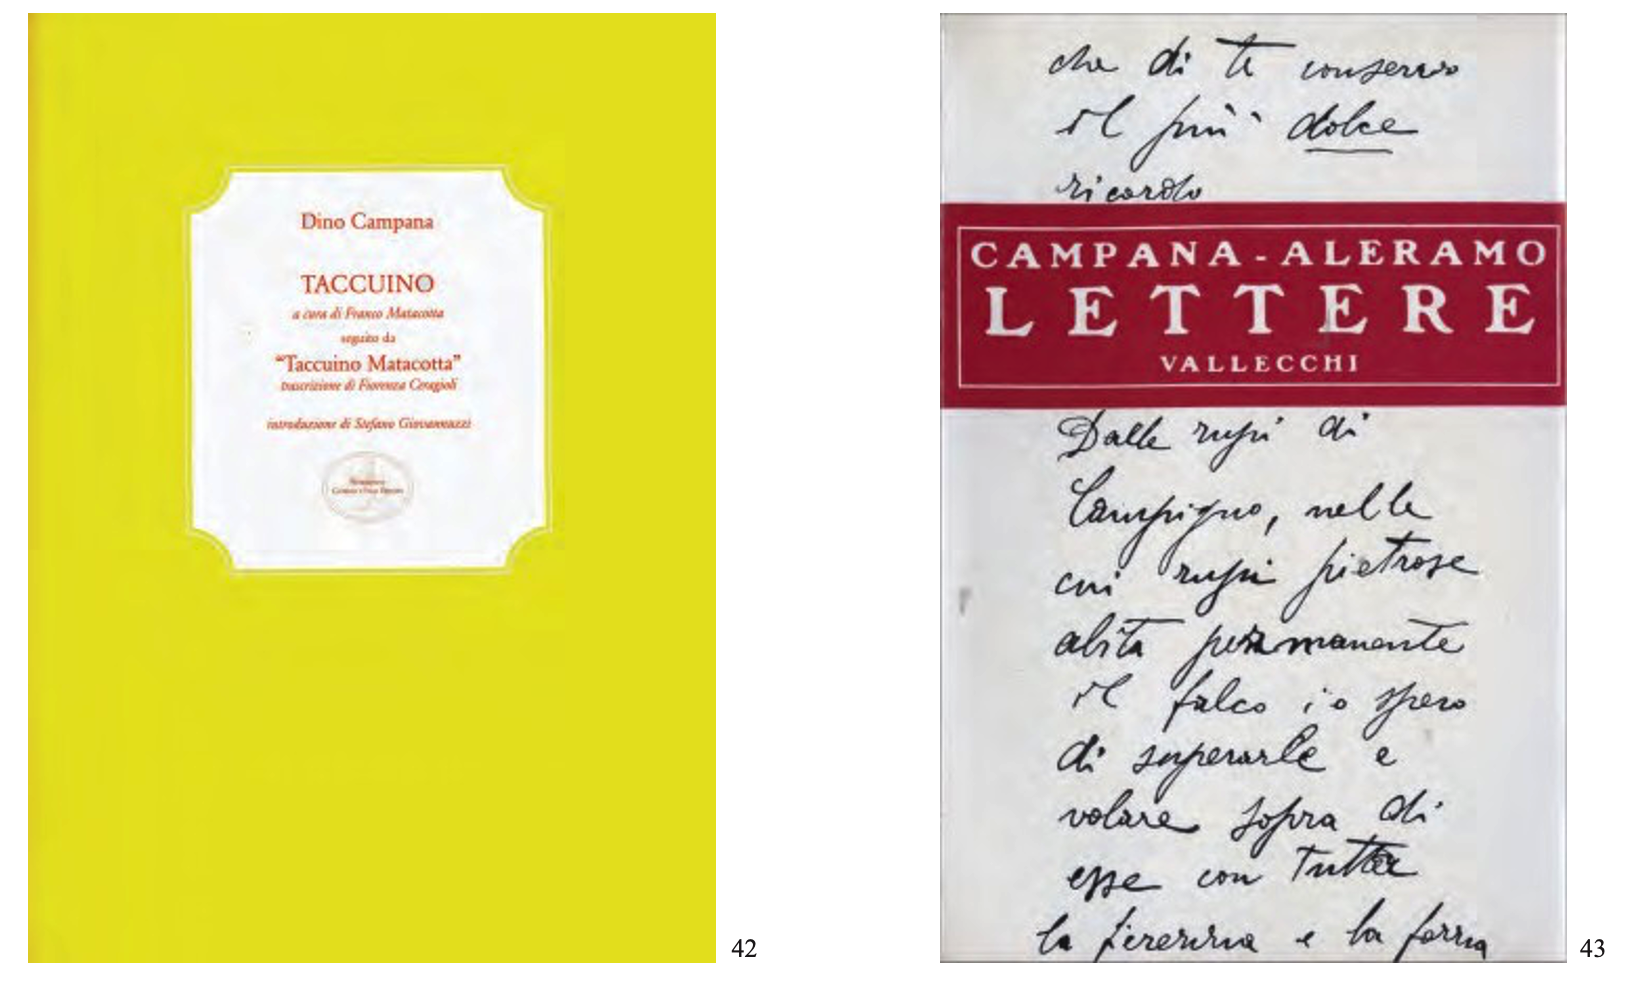 Dino Campana
TACCUINO
a cura di Franco Matacotta
seguito da
“Taccuino Matacotta”
trascrizione di Fiorenza Ceragioli
introduzione di Stefano Giovannuzzi
42
che di te conservo
il più dolce
ricordo
CAMPANA - ALERAMO
LETTERE
VALLECCHI
Dalle rupi di
Campigno, nelle
cui rupi pietrose
abita permanente
il falco io spero
di superarle e
volare sopra di
esse con tutta
la e la
43